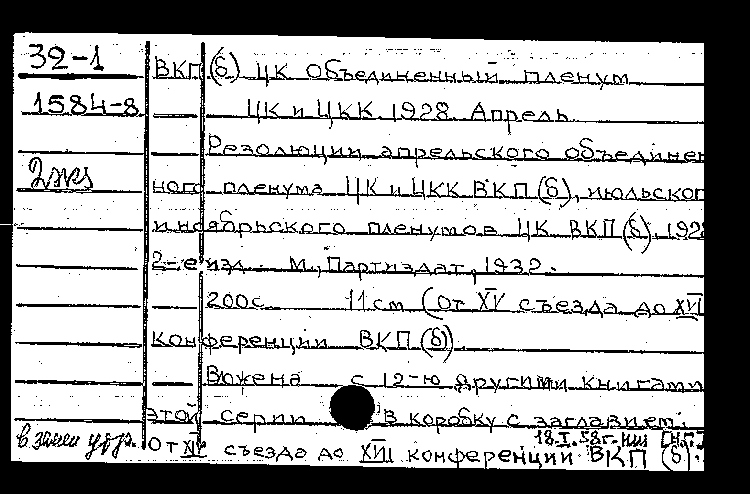 32-1
1584-8
2 экз
ВКП(б) ЦК Объединенный пленум
ЦК и ЦКК. 1928. Апрель.
Резолюции апрельского объединен
ного пленума ЦК и ЦКК ВКП(б), июльског
и ноябрьского пленумов ЦК ВКП(б). 1928
2-е изд. М., Партиздат, 1932.
200с. 11см (От XV съезда до XVII
конференции ВКП(б).
Вложена с 12-ю другими книгами
этой серии в коробку с заглавием:
18.I.58г. нш [Н.П.]
в замен утр.
От XV съезда до XVII конференции ВКП(б).